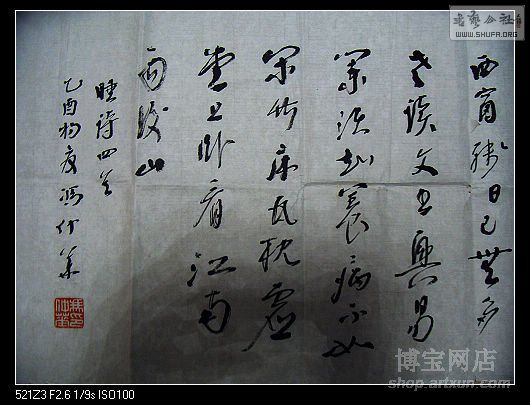 西窗残日已無多
老读文书興易
阑须知養病不如
闲竹床瓦枕虚
堂上卧看江南
雨后山
睡诗四首
乙酉初夏冯仲華
书艺公社
WWW.SHUFA.ORG
博宝网店
shop.artxun.com
521Z3 F2.6 1/9s ISO100